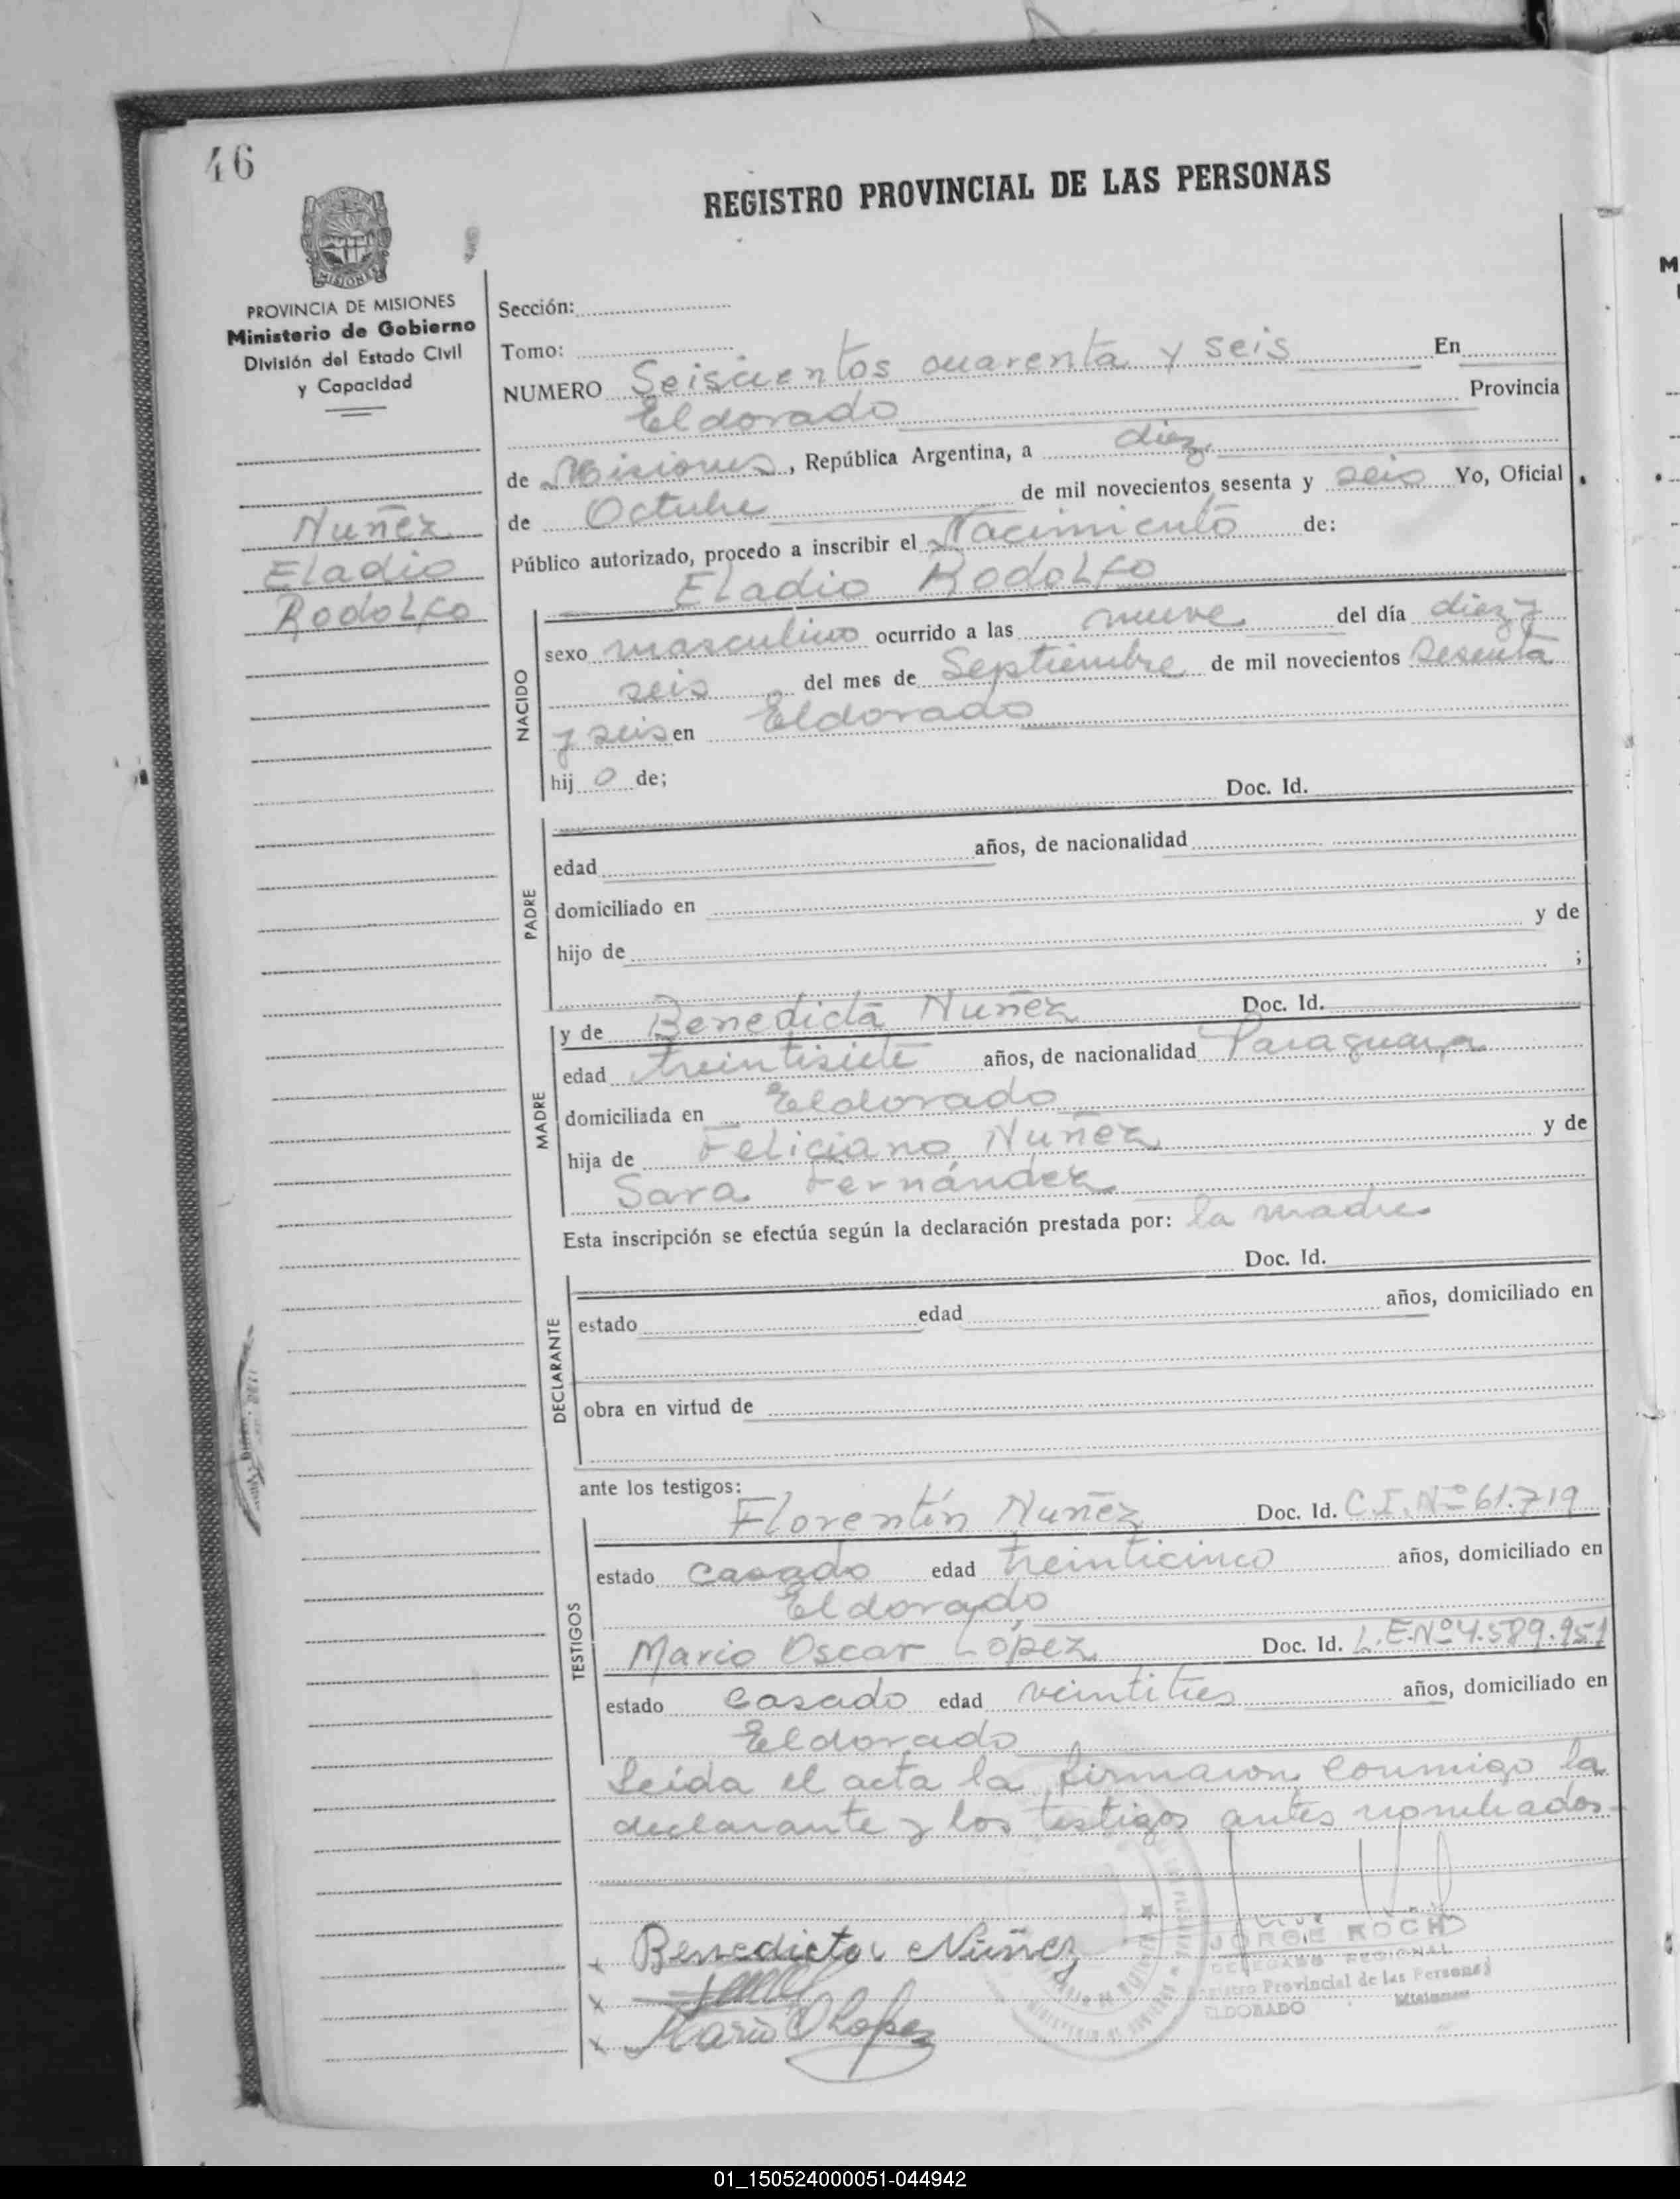 46
REGISTRO PROVINCIAL DE LAS PERSONAS
MISIONES
PROVINCIA DE MISIONES
Ministerio de Gobierno
División del Estado Civil
y Capacidad
Nuñez
Eladio
Rodolfo
Sección:
Tomo:
NUMERO Seiscientos cuarenta y seis En
Eldorado Provincia
de Misiones, República Argentina, a diez
de Octubre de mil novecientos sesenta y seis Yo, Oficial
Público autorizado, procedo a inscribir el Nacimiento de:
Eladio Rodolfo
NACIDO
sexo masculino ocurrido a las nueve del día diez y
seis del mes de Septiembre de mil novecientos sesenta
y seis en Eldorado
hij o de;
PADRE
Doc. Id.
edad años, de nacionalidad
domiciliado en
hijo de y de
;
MADRE
y de Benedicta Nuñez Doc. Id.
edad treintisiete años, de nacionalidad Paraguaya
domiciliada en Eldorado
hija de Feliciano Nuñez y de
Sara Fernández
Esta inscripción se efectúa según la declaración prestada por: la madre
DECLARANTE
Doc. Id.
estado edad años, domiciliado en
obra en virtud de
ante los testigos:
TESTIGOS
Florentín Nuñez Doc. Id. C.I. Nº 61.719
estado casado edad treinticinco años, domiciliado en
Eldorado
Mario Oscar López Doc. Id. L.E.Nº 4.589.951
estado casado edad veintitres años, domiciliado en
Eldorado
Leída el acta la firmaron conmigo la
declarante y los testigos antes nombrados.-
x Benedicta Nuñez
x
x Mario O Lopez
JORGE ROCH
DELEGADO REGIONAL
Registro Provincial de las Personas
ELDORADO Misiones
01_150524000051-044942